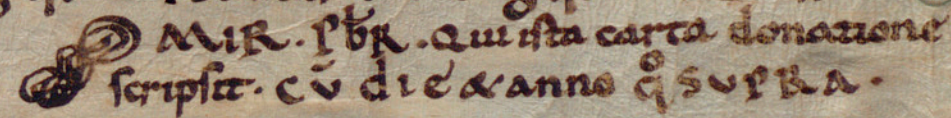 MIR. PB̅R. Qui ista carta donatione
scripsit. CŪ DIE & anno q̊ SUPRA.